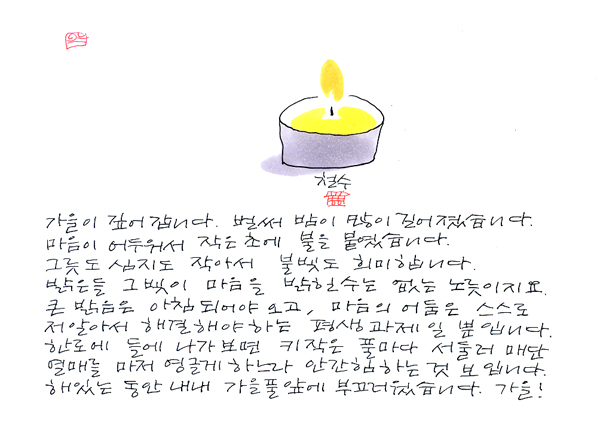 철수
가을이 깊어 갑니다. 벌써 밤이 많이 길어졌습니다.
마음이 어두워서 작은 초에 불을 붙였습니다.
그릇도 심지도 작아서 불빛도 희미합니다.
밝은들 그 빛이 마음을 밝힐 수는 없는 노릇이지요.
큰 밝음은 아침 되어야 오고, 마음의 어둠은 스스로
저 알아서 해결해야 하는 평생 과제일 뿐입니다.
한로에 들에 나가보면 키작은 풀마다 서둘러 매단
열매를 마저 영글게 하느라 안간힘하는 것 보입니다.
해있는 동안 내내 가을풀 앞에 부끄러웠습니다. 가을!